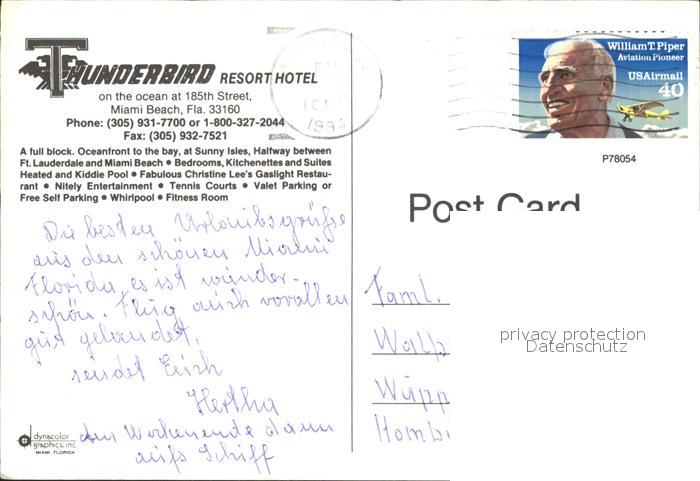 THUNDERBIRD RESORT HOTEL
on the ocean at 185th Street,
Miami Beach, Fla. 33160
Phone: (305) 931-7700 or 1-800-327-2044
Fax: (305) 932-7521
A full block. Oceanfront to the bay, at Sunny Isles, Halfway between
Ft. Lauderdale and Miami Beach • Bedrooms, Kitchenettes and Suites
Heated and Kiddie Pool • Fabulous Christine Lee's Gaslight Restau-
rant • Nitely Entertainment • Tennis Courts • Valet Parking or
Free Self Parking • Whirlpool • Fitness Room
Die besten Urlaubsgrüße
aus dem schönen Miami
Florida, es ist wunder-
schön. Flug auch vorallen
gut gelandet,
sendet Euch
Hertha
am Wochenende dann
aufs Schiff
dynacolor
graphics, inc.
MIAMI, FLORIDA
William T. Piper
Aviation Pioneer
USAirmail
40
P78054
Post Card
Faml.
Walp
Wupp
Hombi
privacy protection
Datenschutz